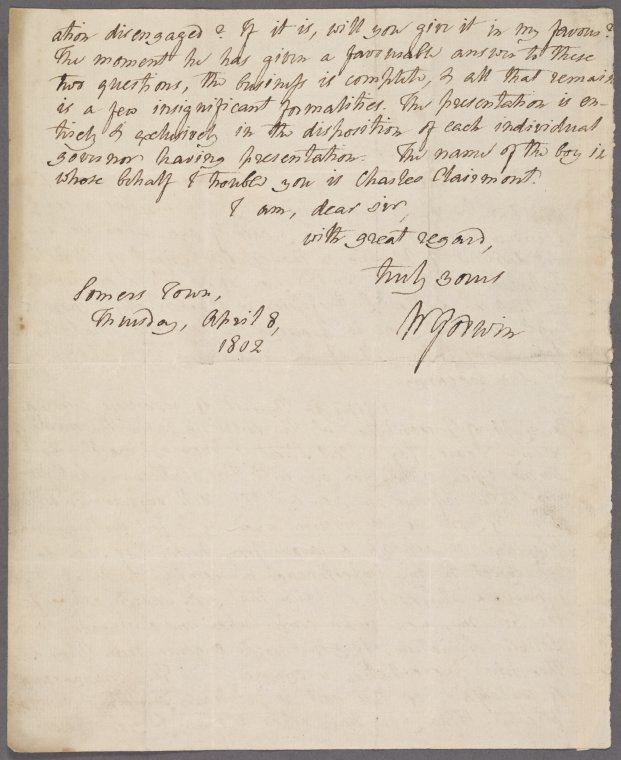 ation disengaged? If it is, will you give it in my favour?
The moment he has given a favourable answer to these
two questions, the business is complete, & all that remain
is a few insignificant formalities. The presentation is en-
tirely & exclusively in the disposition of each individual
governor having presentation. The name of the boy in
whose behalf I trouble you is Charles Clairmont.
I am, dear sir,
with great regard,
truly yours
WGodwin
Somers Town,
Thursday, April 8,
1802